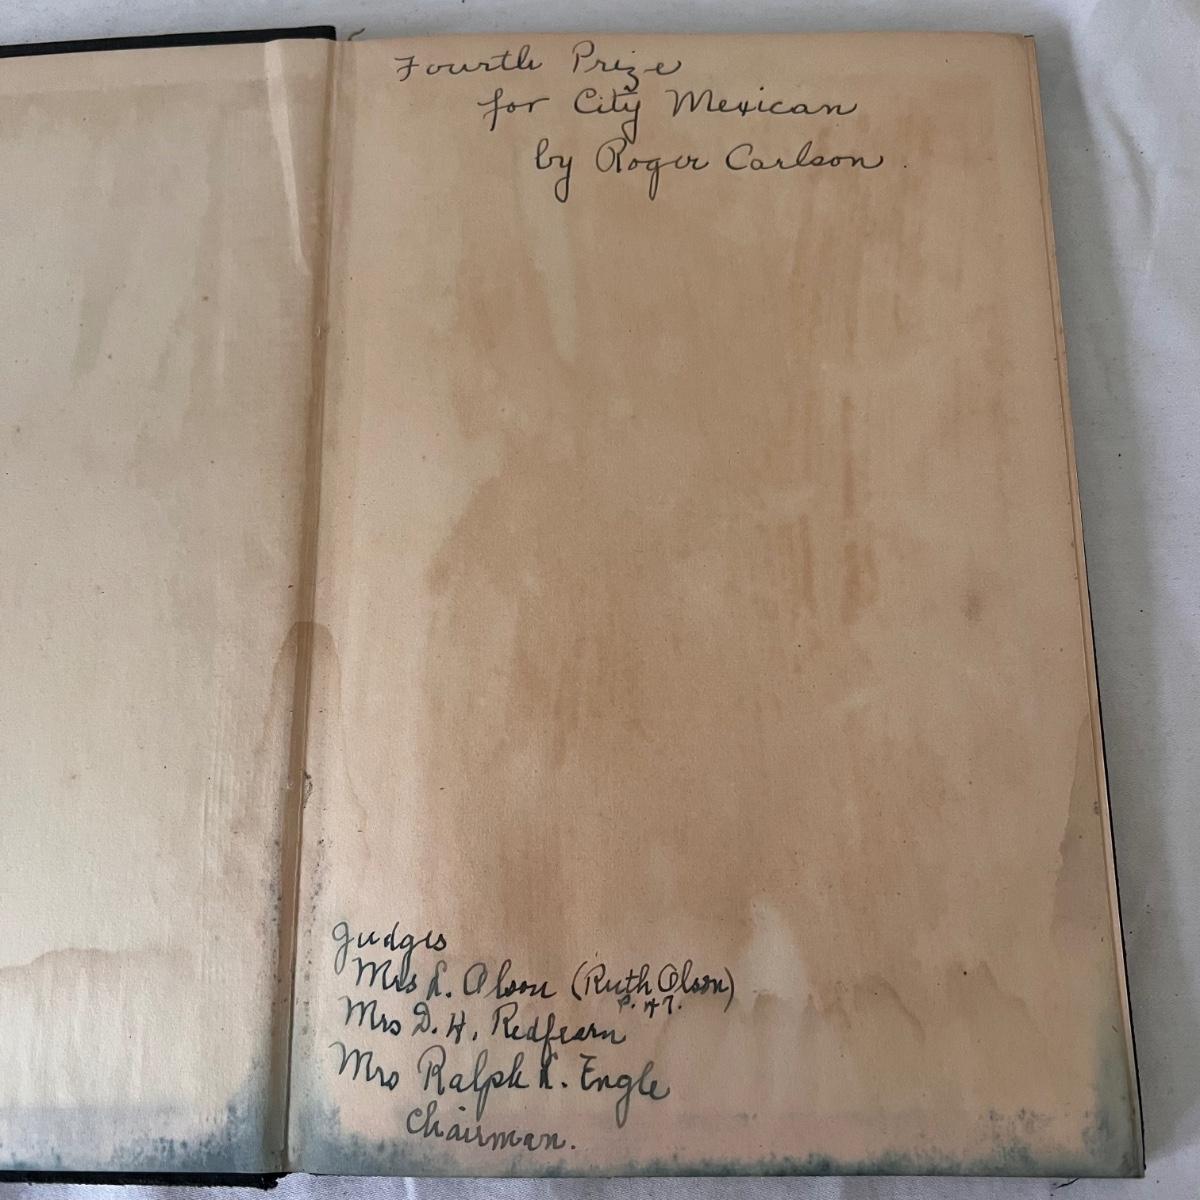 Fourth Prize
for City Mexican
by Roger Carlson.
Judges
Mrs L. Olson (Ruth Olson)
P. 47.
Mrs D. H. Redfearn
Mrs Ralph L. Engle
Chairman.